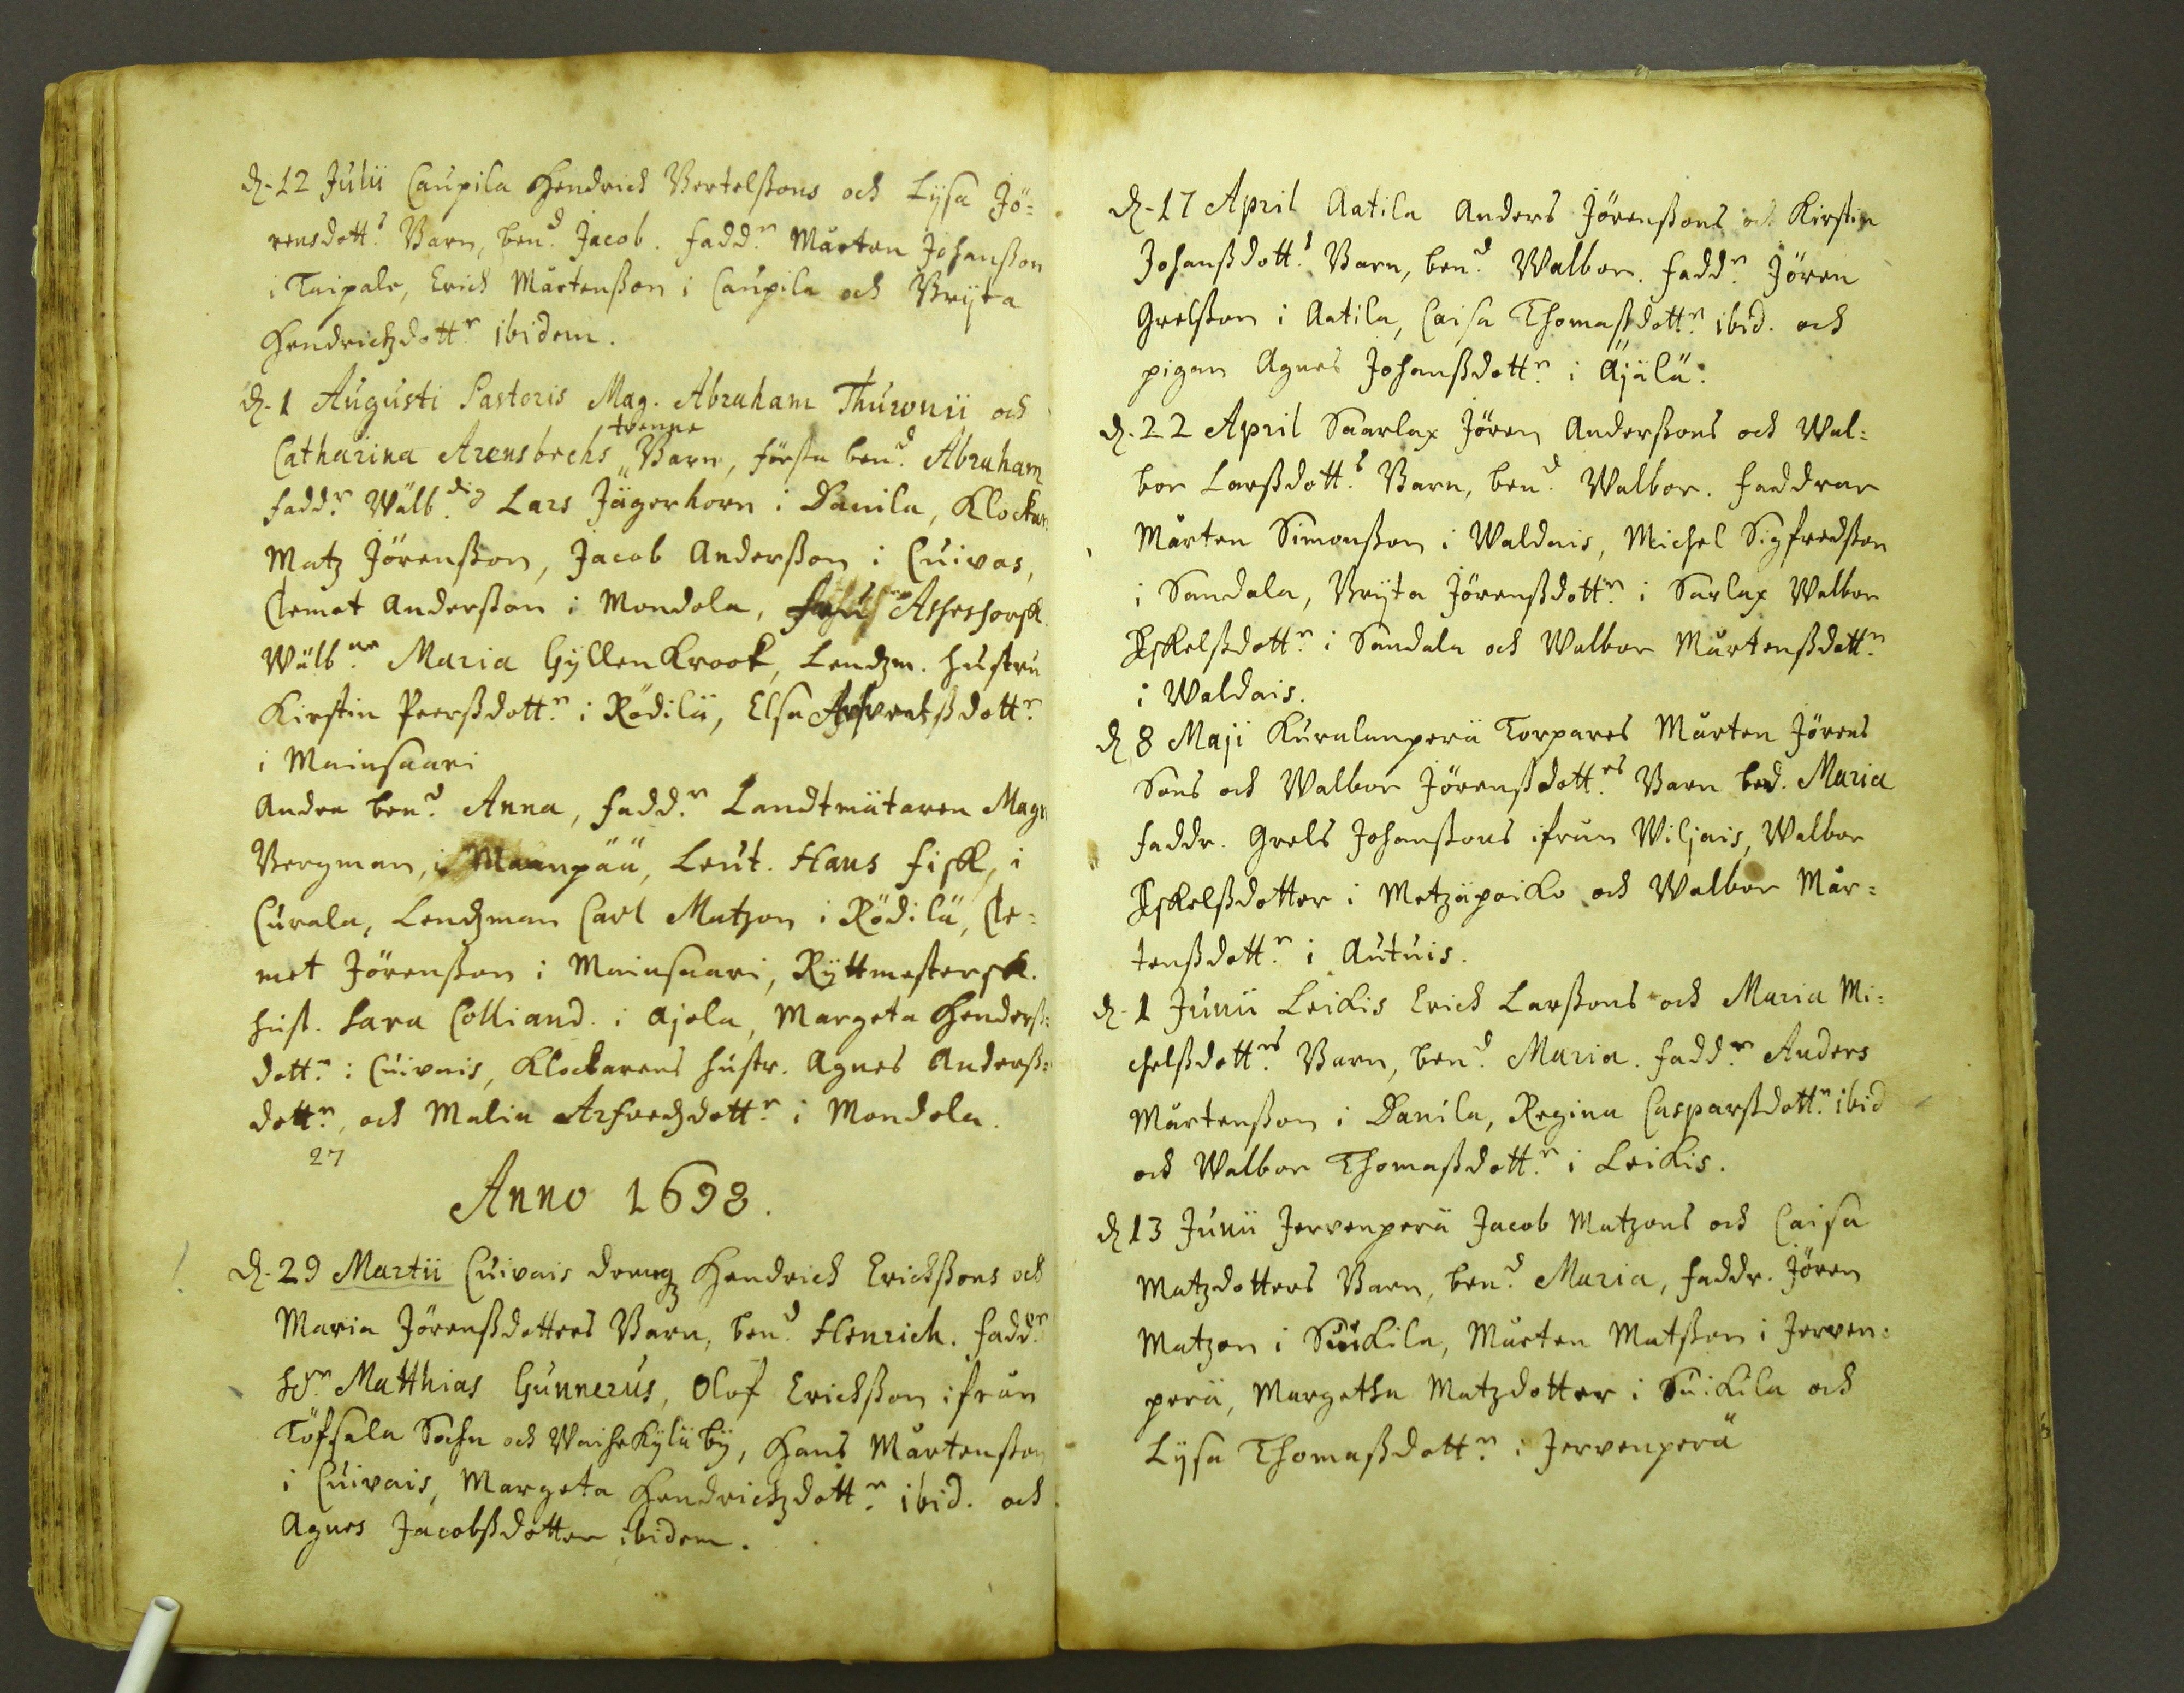 d. 12 Julii Caupila Hendrich Bertelßons och Lÿsa Jö-
rensdott.s Barn, ben.d Jacob. Fadd.r Mårten Johanßon
i Taipale, Erich Mårtenßon i Caupila och Brÿta
Hendrichzdott.r ibidem.
d. 1 Augusti Pastoris Mag. Abraham Thuronii och
tvenne
Catharina Arensbechs Barn, första ben.d Abraham
Fadd.r Wälb.dig Lars Jägerhorn i Danila, Klockar
Matz Jörenßon, Jacob Anderßon i Cuivas,
Clemet Anderßon i Mondola,
Wälb.ne Maria Gÿllenkrook, Lendzm. hustru
Kirstin Peerßdott.r i Rödilä, Elsa
i Mainsaari
Andra ben.d Anna, Fadd.r Landtmätaren Magn
Bergman, i Maanpää, Leut. Hans Fisk, i
Curala, Lendzman Carl Matzon i Rödilä, Cle-
met Jörenßon i Mainsaari, Rÿttmestersk.
hust. Sara Colliand. i Ajola, Margeta Henderß-
dott.r i Cuivais, Klockarens hustr. Agnes Anderß-
dott.r, och Malin Arfvedzdott.r i Mondola.
27
Anno 1698.
d. 29 Martii Cuivais dreng Hendrich Erichßons och
Maria Jörenßdotters Barn, ben.d Henrich. Fadd.r
H.r Matthias Gunnerus, Olof Erichßon ifrån
Töfsala Sochn och Waihekÿlä bÿ, Hans Mårtenßon
i Cuivais, Margeta Hendrichzdott.r ibid. och
Agnes Jacobßdotter ibidem.
d. 17 April Aatila Anders Jörenßons och Kirstin
Johanßdott.s Barn, ben.d Walbor. Fadd.r Jören
Grelßon i Aatila, Caisa Thomaßdott.r ibid. och
pigan Agnes Johanßdott.r i Äjälä.
d. 22 April Saarlax Jören Anderßons och Wal-
bor Larßdott.s Barn, ben.d Walbor. Faddrar
Mårten Simonßon i Waldais, Michel Sigfredßon
i Sandala, Brÿta Jörenßdott.r i Sarlax Walbor
Eskelßdott.r i Sandala och Walbor Mårtenßdott.r
i Waldais.
d. 8 Maji Kuralanperä Torpares Mårten Jörens
Sons och Walbor Jörenßdott.rs Barn bed. Maria
Faddr. Grels Johanßons ifrån Wiljais, Walbor
Eskelßdotter i Metzäpaiko och Walbor Mår-
tenßdott.r i Autuis.
d. 1 Junii Leikis Erich Larßons och Maria Mi-
chelßdott.rs Barn, ben.d Maria. Fadd.r Anders
Mårtenßon i Danila, Regina Casparßdott.r ibid
och Walbor Thomaßdott.r i Leikis.
d. 13 Junii Jervenperä Jacob Matzons och Caisa
Matzdotters Barn, ben.d Maria, Faddr. Jören
Matzon i Suikila, Mårten Matßon i Jerven-
perä, Margetha Matzdotter i Suikila och
Lÿsa Thomaßdott.r i Jervenperä